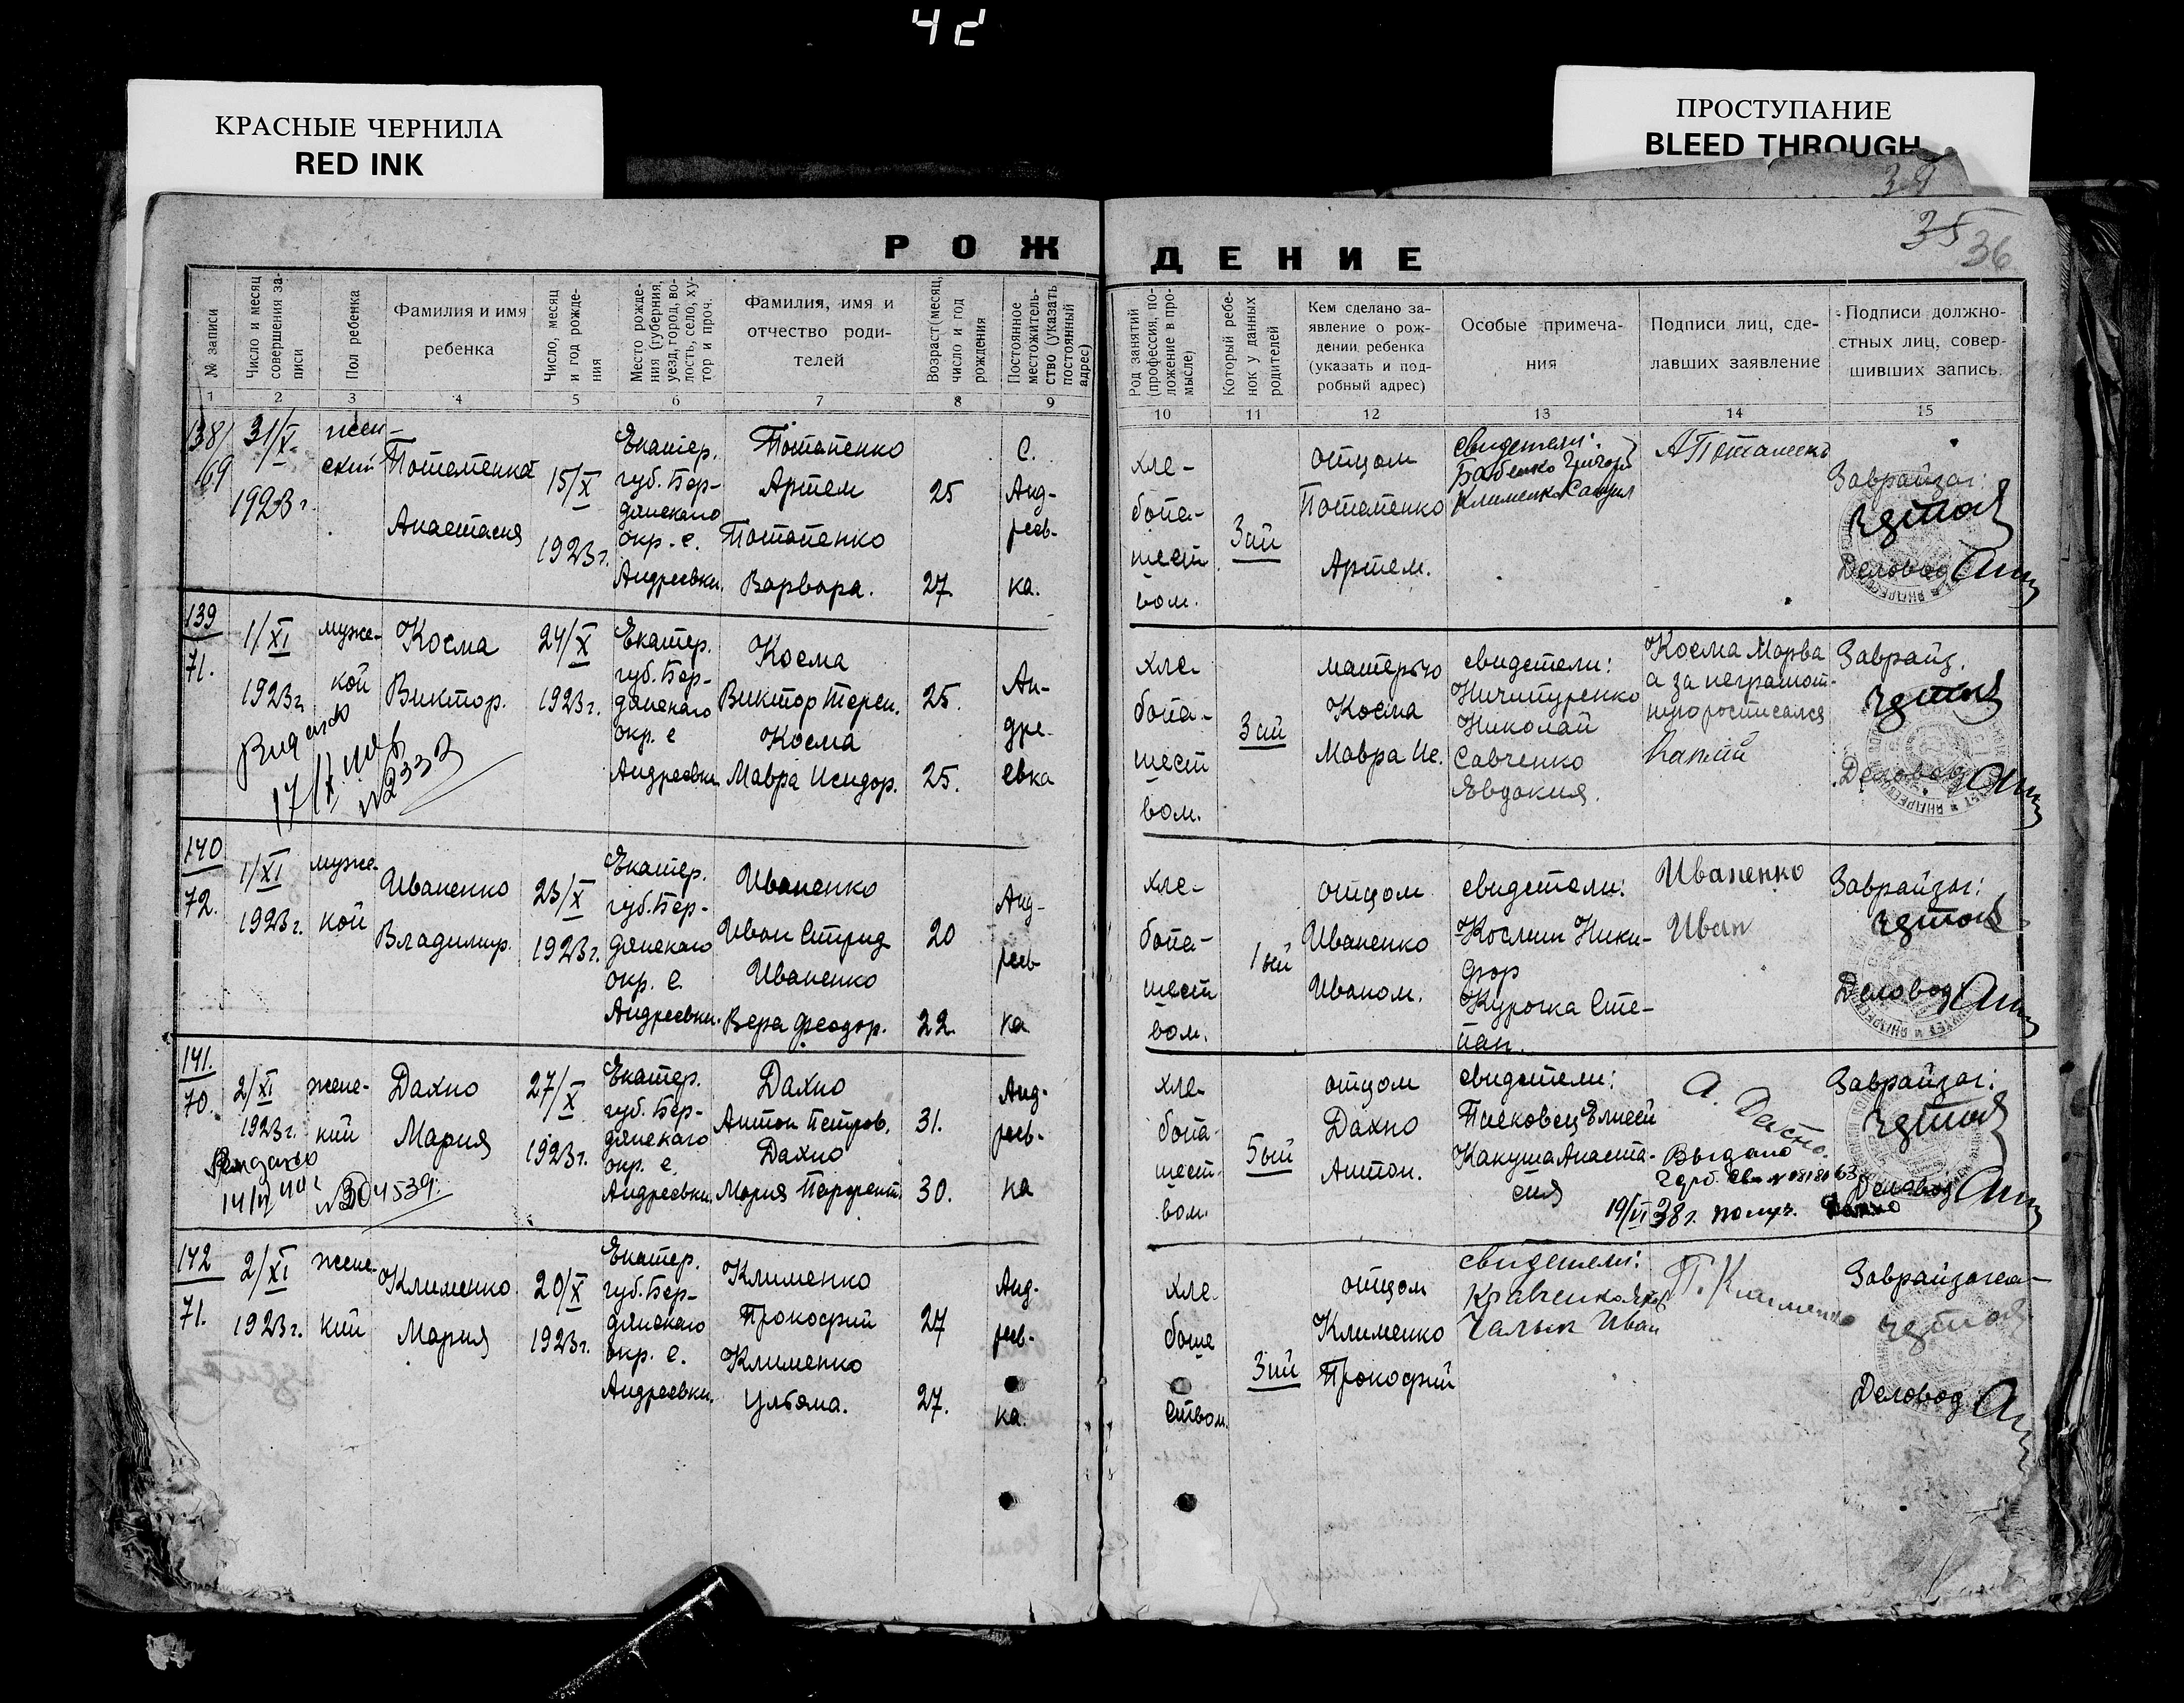 42
КРАСНЫЕ ЧЕРНИЛА
RED INK
ПРОСТУПАНИЕ
BLEED THROUGH
35
36
РОЖДЕНИЕ
№ записи
Число и месяц совершения записи
Пол ребенка
Фамилия и имя ребенка
Число, месяц и год рождения
Место рождения (губерния, уезд, город, волость, село, хутор и проч.
Фамилия, имя и отчество родителей
Возраст (месяц, число и год рождения
Постоянное местожительство (указать постоянный адрес)
Род занятий (профессия, положение в промысле)
Который ребенок у данных родителей
Кем сделано заявление о рождении ребенка (указать и подробный адрес)
Особые примечания
Подписи лиц, сделавших заявление
Подписи должностных лиц, совершивших запись.
1 2 3 4 5 6 7 8 9 10 11 12 13 14 15
138/69
31/X 1923 г.
женский
Потапенко Анастасия
15/X 1923 г.
Екатер. губ. Бердянского окр. с. Андреевки.
Потапенко Артем
25
Потапенко Варвара.
27.
С. Андреевка.
хлебопашеством.
3ий
отцом Потапенко Артем.
свидетели: Бабенко Григор Клименко
А Потапенко
Заврайзаг:
Деловод
139
71.
1/XI 1923 г.
мужской
Косма Виктор.
24/X 1923 г.
Екатер. губ. Бердянского окр. с Андреевки
Косма Виктор Терен.
25.
Косма Мавра Исидор.
25.
Андреевка
хлебопашеством.
3ий
матерью Косма Мавра Ис.
свидетели: Ничипуренко Николай Савченко Евдокия.
Косма Мавра а за неграмотную росписался
Заврайз.
Деловод
17/X
№2333
140
72.
1/XI 1923 г.
мужской
Иваненко Владимир.
23/X 1923 г.
Екатер. губ. Бердянского окр. с. Андреевки.
Иваненко Иван Спирид
20
Иваненко Вера Феодор.
22.
Андреевка
хлебопашеством.
1ый
отцом Иваненко Иваном.
свидетели: Космин Никифор Курочка Степан.
Иваненко Иван
Заврайзаг:
Деловод
141.
70.
2/XI 1923 г.
женский
Дахно Мария
27/X 1923 г.
Екатер. губ. Бердянского окр. с. Андреевки.
Дахно Антон Петров.
31.
Дахно Мария Парфент.
30.
Андреевка
хлебопашеством.
5ый
отцом Дахно Антон.
свидетели: Псековец Елисей Какуша Анастасия
А. Дахно.
Выдано
19/VI 38 г. получ.
Заврайзаг:
Деловод
№304539.
142
71.
2/XI 1923 г.
женский
Клименко Мария
20/X 1923 г.
Екатер. губ. Бердянского окр. с. Андреевки.
Клименко Прокофий
27
Клименко Ульяна.
27.
Андреевка.
хлебопашеством.
3ий
отцом Клименко Прокофий
свидетели: Кравченко Яков Чалый Иван
П. Клименко
Деловод